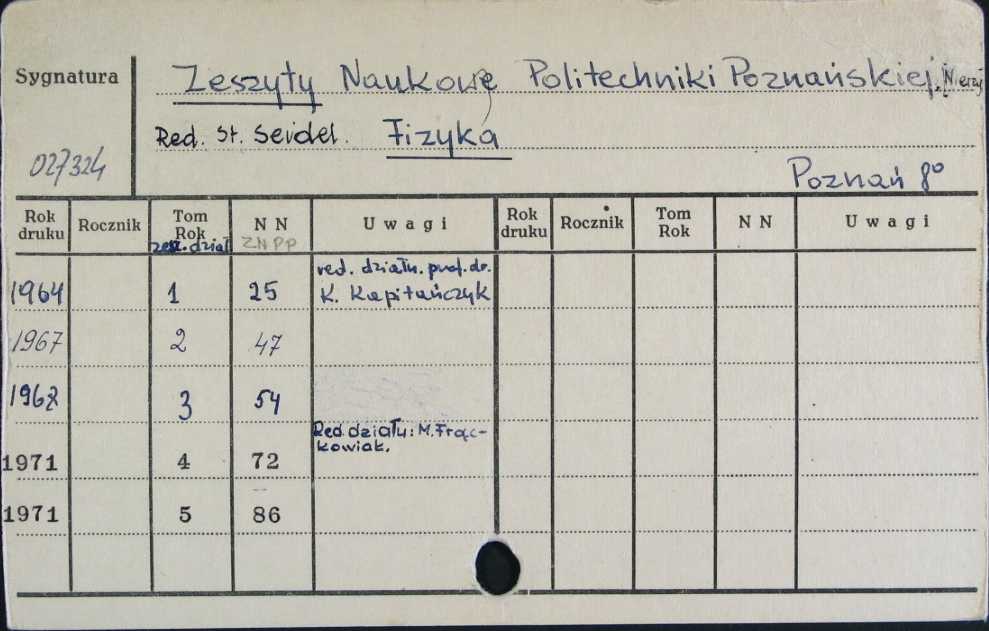 Sygnatura
Zeszyty Naukowe Politechniki Poznańskiej.
Red. St. Seidel. Fizyka
027324
Poznań 8°
Rok druku Rocznik Tom Rok N N Uwagi Rok druku Rocznik Tom Rok N N Uwagi
zesz. dział ZNPP
red. działu. prof. dr.
1964 1 25 K. Kapitańczyk
1967 2 47
1968 3 54
Red. działu: M. Frąc-
kowiak.
1971 4 72
1971 5 86